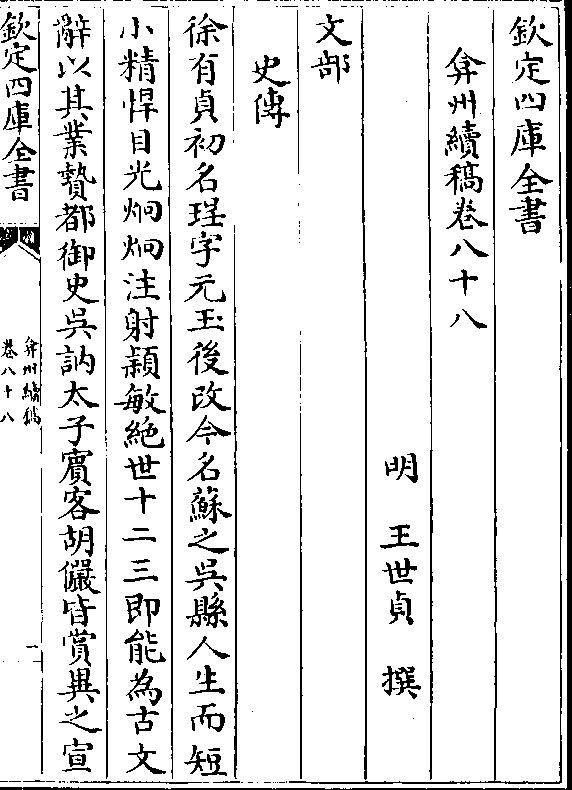 欽定四庫全書
弇州續稿卷八十八
明　王世貞　撰
文部
史傳
徐有貞初名珵字元玉後改今名蘇之吳縣人生而短
小精悍目光炯炯注射穎敏絶世十二三即能為古文
辭以其業贄都御史吳訥太子賓客胡儼皆賞異之宣
欽定四庫全書
弇州續稿
卷八十八
一